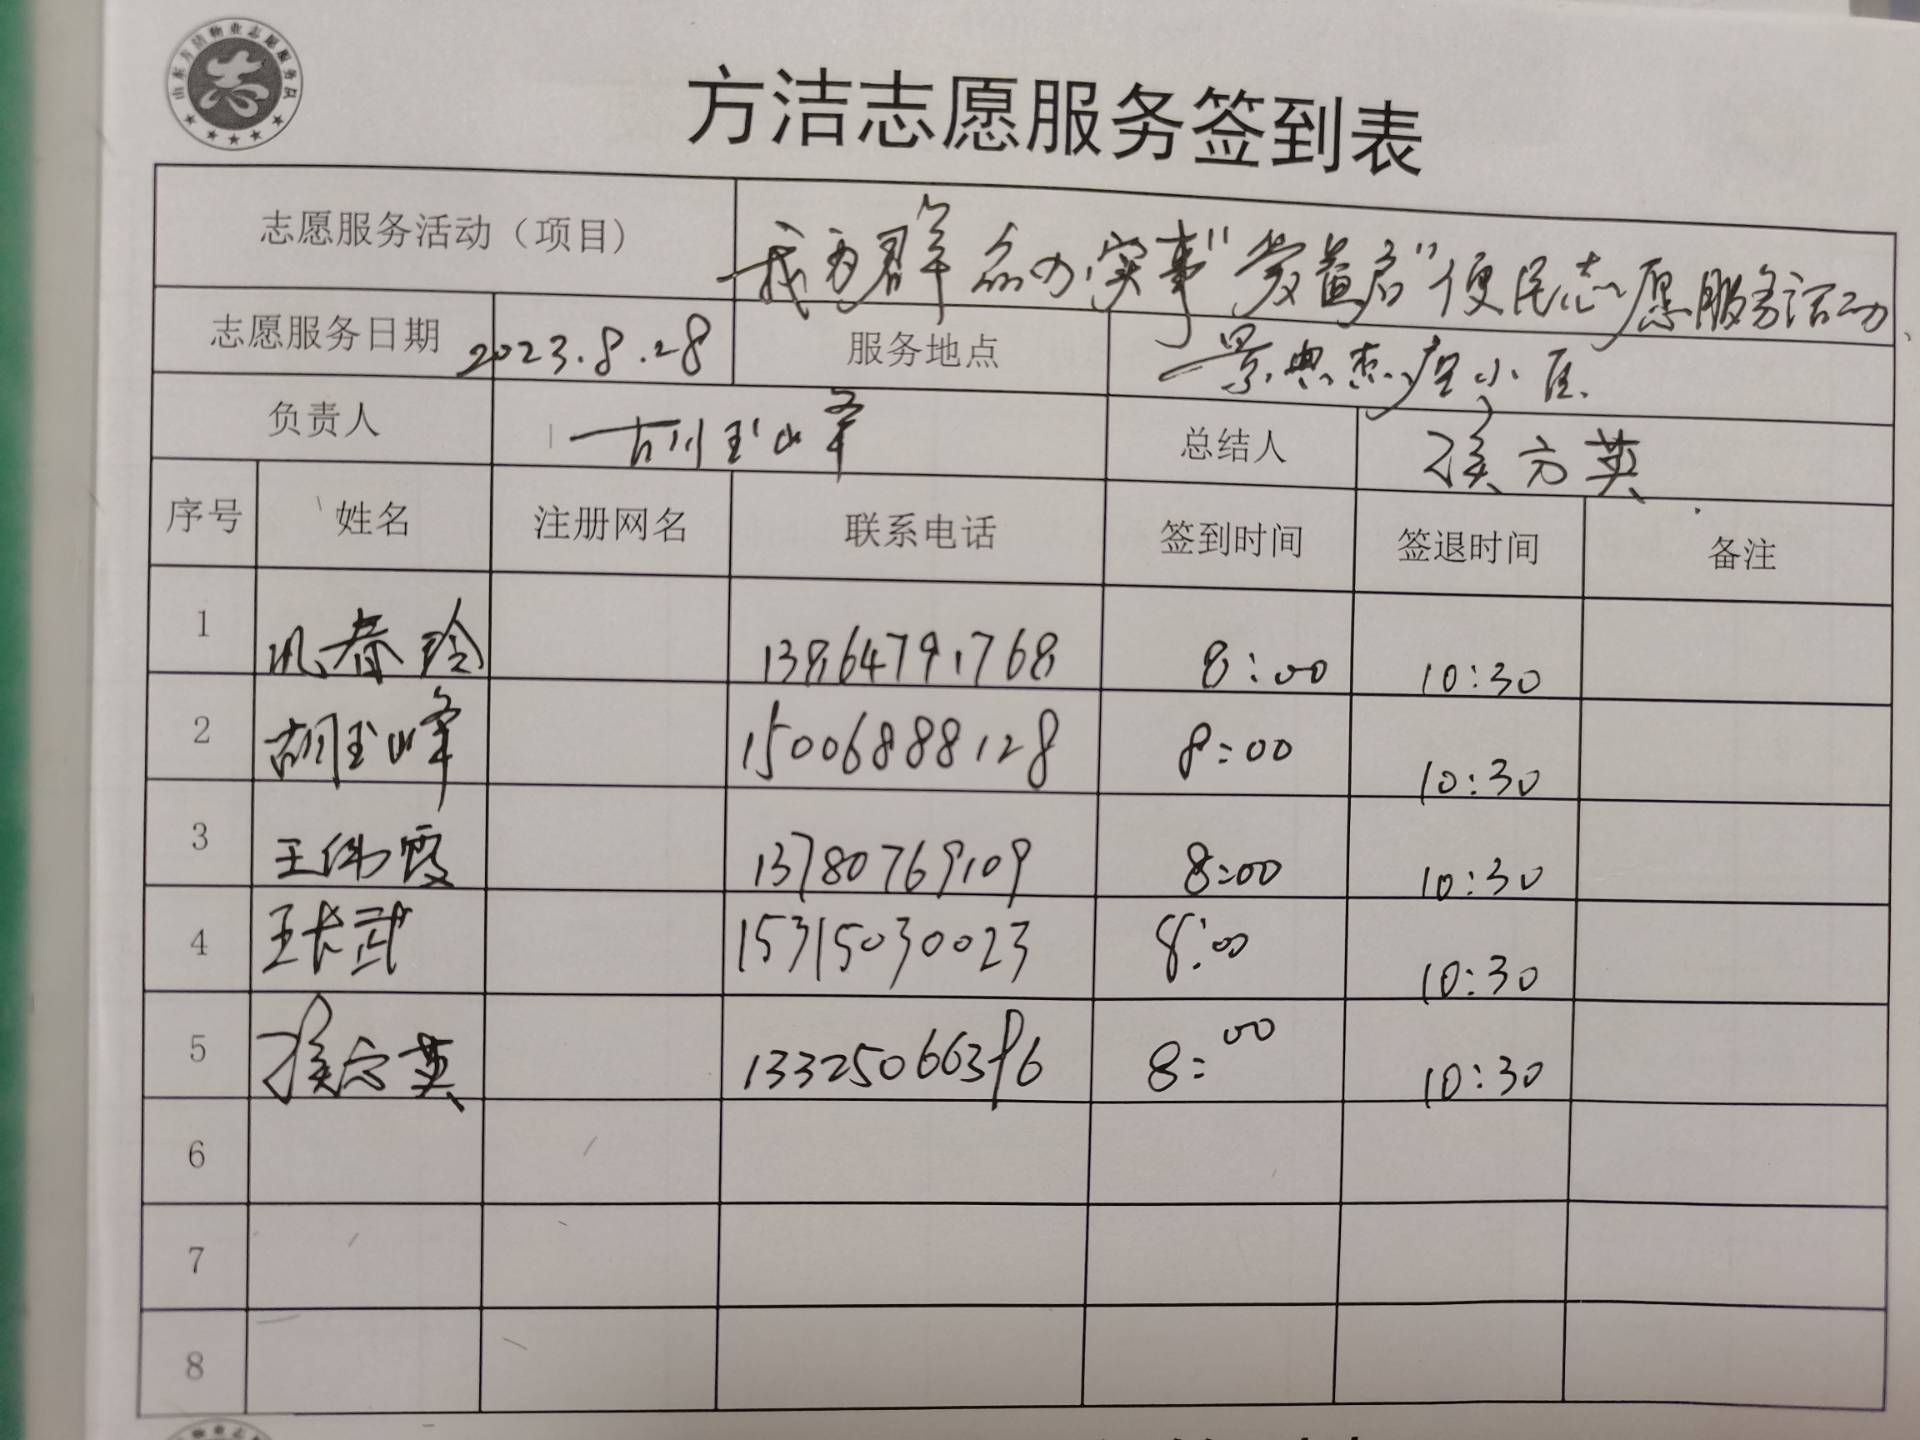 山东方洁物业志愿服务队
方洁志愿服务签到表
志愿服务活动（项目） 我为群众办实事"党益启"便民志愿服务活动
志愿服务日期 2023.8.28 服务地点 景典杰座小区
负责人 胡玉峰 总结人 侯方英
序号 姓名 注册网名 联系电话 签到时间 签退时间 备注
1 春玲 13864791768 8:00 10:30
2 胡玉峰 15006888128 8:00 10:30
3 王伟霞 13780769109 8:00 10:30
4 王长武 15315030023 8:00 10:30
5 侯方英 8:00 10:30
6
7
8